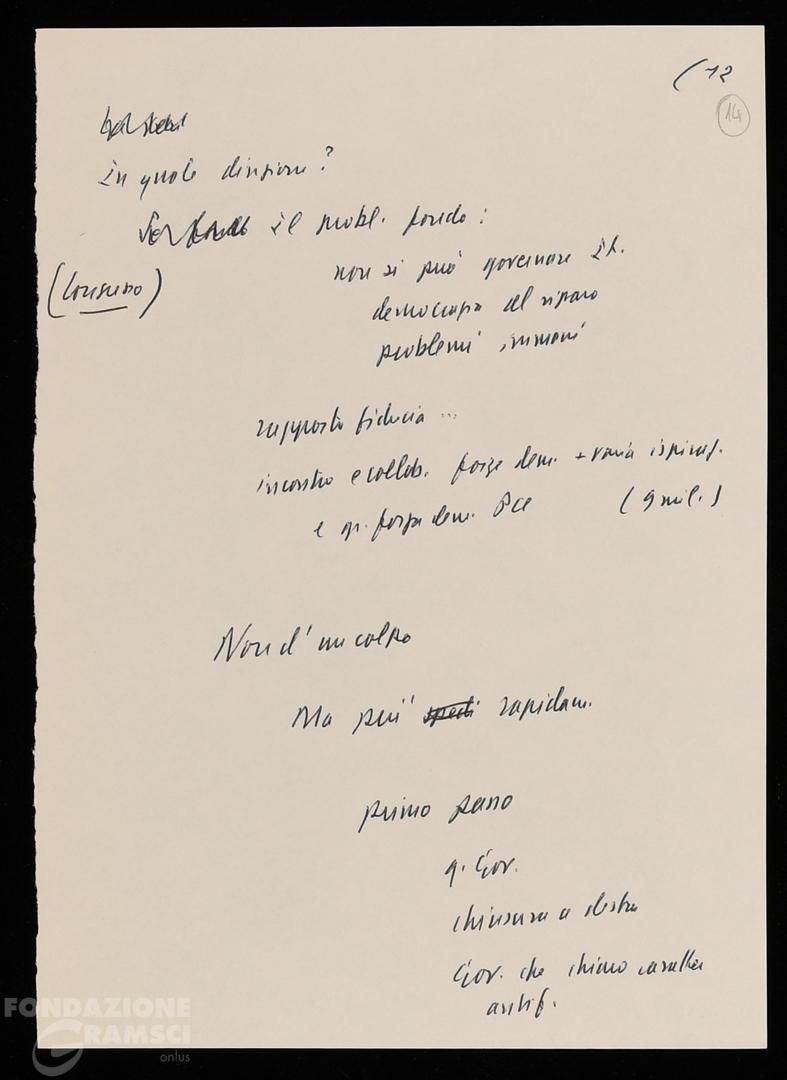 (12
14
In quale direzione?
il probl. fondo:
(Consenso)
non si può governare It.
democrazia al riparo
problemi immani
rapporto fiducia ...
incontro e collab. forze dem. + varia ispiraz.
e gr. forza dem. Pci (9 mil.)
Non d'un colpo
Ma più rapidam.
primo passo
q. Gov.
chiusura a destra
Gov. che chiaro carattere
antif.
FONDAZIONE
GRAMSCI
onlus